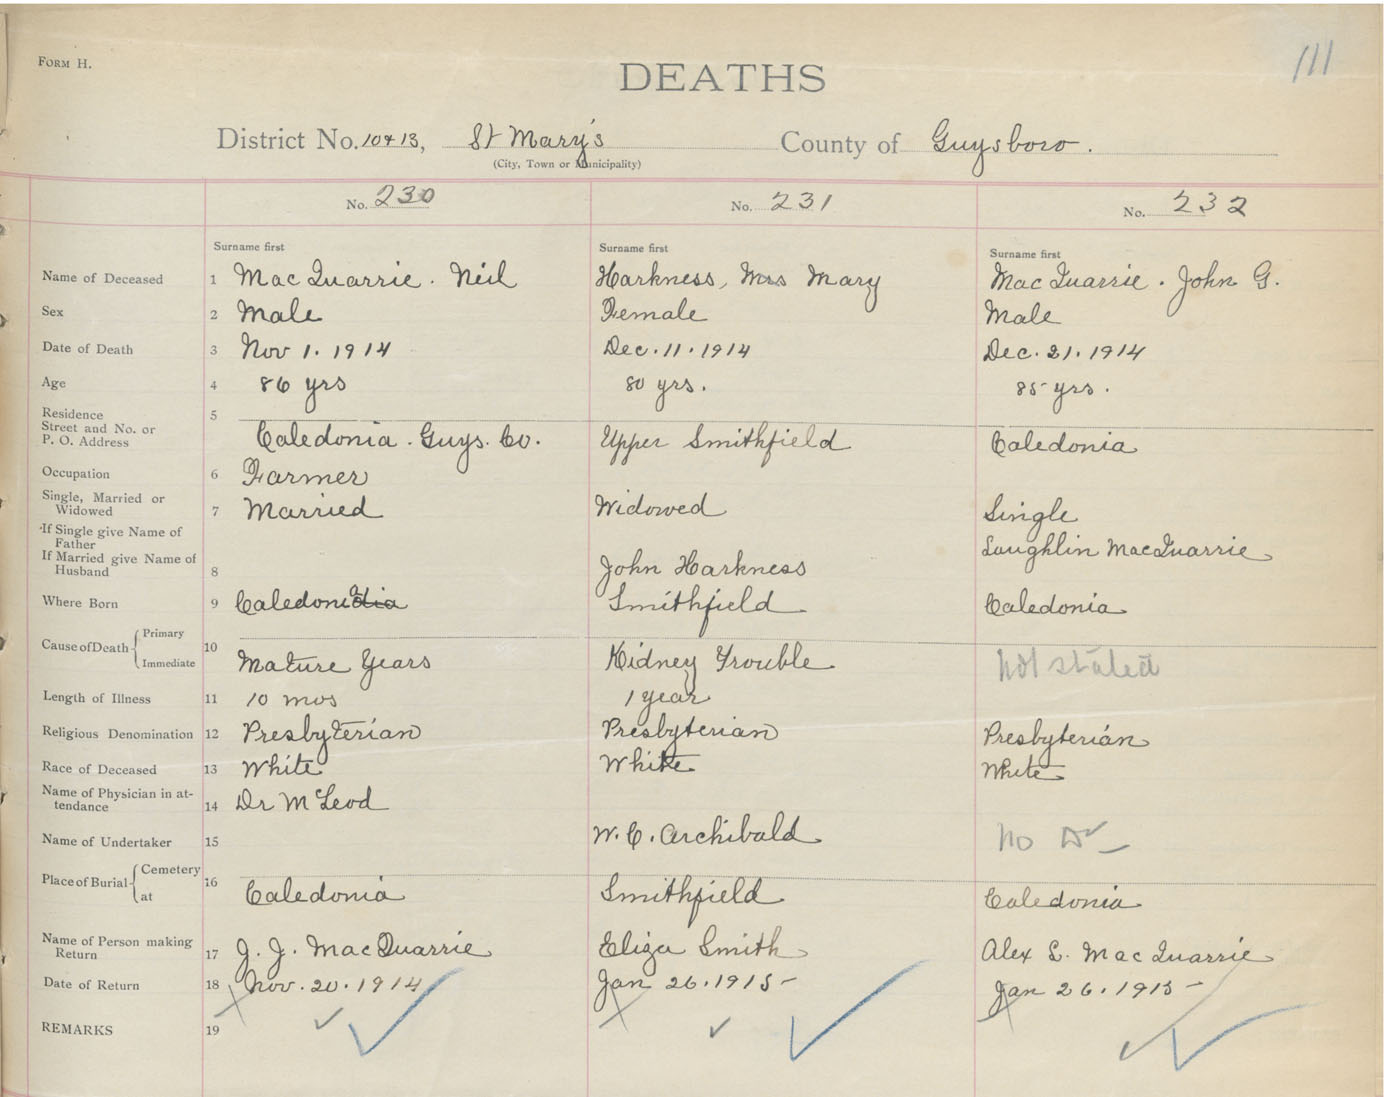 111
FORM H.
DEATHS
District No. 10 & 13, St Mary's County of Guysboro.
(City, Town or Municipality)
No. 230 No. 231 No. 232
Surname first Surname first Surname first
Name of Deceased 1 MacQuarrie. Neil Harkness, Mrs Mary MacQuarrie. John G.
Sex 2 Male Female Male
Date of Death 3 Nov 1. 1914 Dec. 11. 1914 Dec. 21. 1914
Age 4 86 yrs 80 yrs. 85 yrs.
Residence 5
Street and No. or
P. O. Address Caledonia. Guys. Co. Upper Smithfield Caledonia
Occupation 6 Farmer
Single, Married or
Widowed 7 Married Widowed Single
If Single give Name of
Father Laughlin MacQuarrie
If Married give Name of
Husband 8 John Harkness
Where Born 9 Caledonia Smithfield Caledonia
Cause of Death Primary 10
Immediate Mature Years Kidney Trouble Not stated
Length of Illness 11 10 mos 1 year
Religious Denomination 12 Presbyterian Presbyterian Presbyterian
Race of Deceased 13 White White White
Name of Physician in at-
tendance 14 Dr McLeod
Name of Undertaker 15 W. C. Archibald No Dr
Place of Burial Cemetery 16
at Caledonia Smithfield Caledonia
Name of Person making
Return 17 J. J. MacQuarrie Eliza Smith Alex L. MacQuarrie
Date of Return 18 Nov. 20. 1914 Jan 26. 1915- Jan 26. 1915-
REMARKS 19